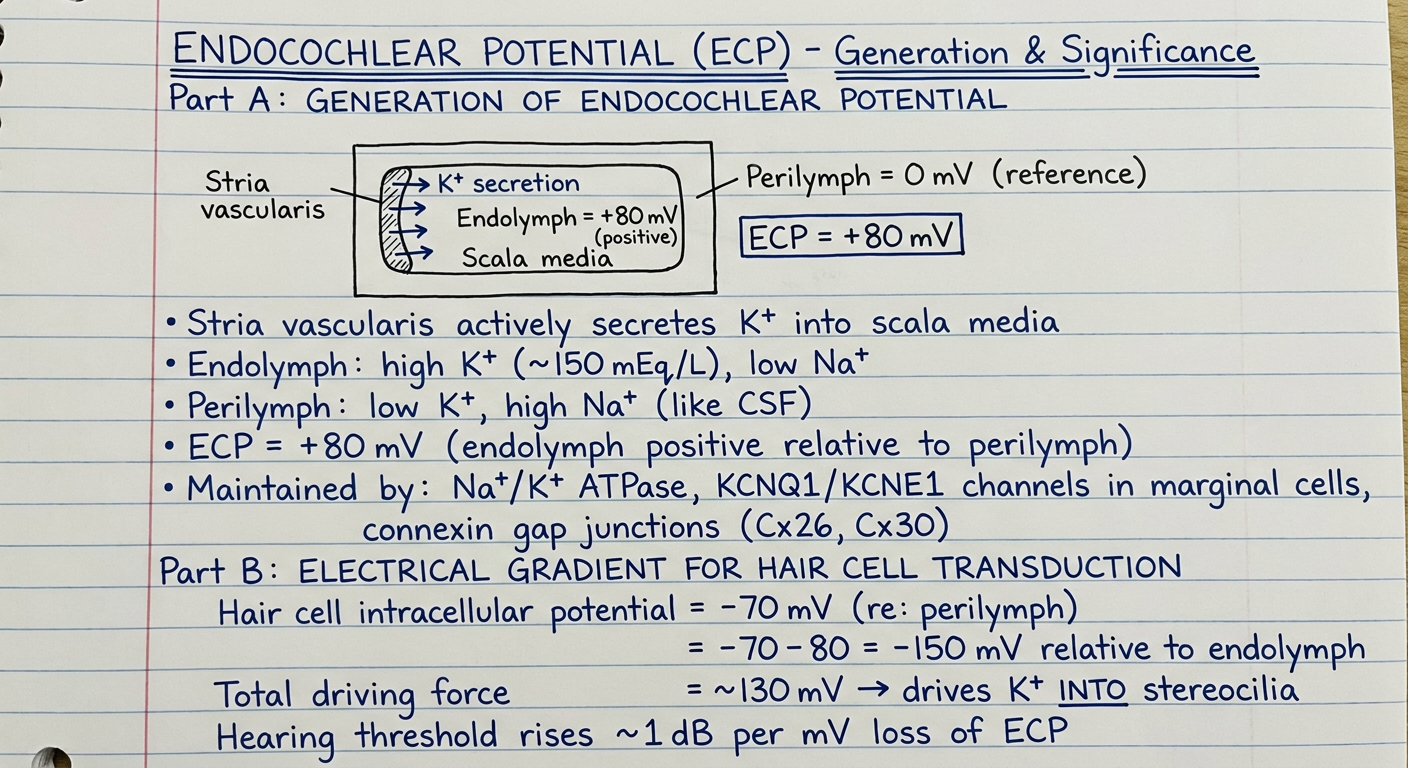 ENDOCOCHLEAR POTENTIAL (ECP) – Generation & Significance
Part A: GENERATION OF ENDOCOCHLEAR POTENTIAL
Stria
vascularis
K⁺ secretion
Endolymph = +80 mV
(positive)
Scala media
Perilymph = 0 mV (reference)
ECP = +80 mV
• Stria vascularis actively secretes K⁺ into scala media
• Endolymph: high K⁺ (~150 mEq/L), low Na⁺
• Perilymph: low K⁺, high Na⁺ (like CSF)
• ECP = +80 mV (endolymph positive relative to perilymph)
• Maintained by: Na⁺/K⁺ ATPase, KCNQ1/KCNE1 channels in marginal cells,
connexin gap junctions (Cx26, Cx30)
Part B: ELECTRICAL GRADIENT FOR HAIR CELL TRANSDUCTION
Hair cell intracellular potential = −70 mV (re: perilymph)
= −70 − 80 = −150 mV relative to endolymph
Total driving force = ~130 mV → drives K⁺ INTO stereocilia
Hearing threshold rises ~1 dB per mV loss of ECP